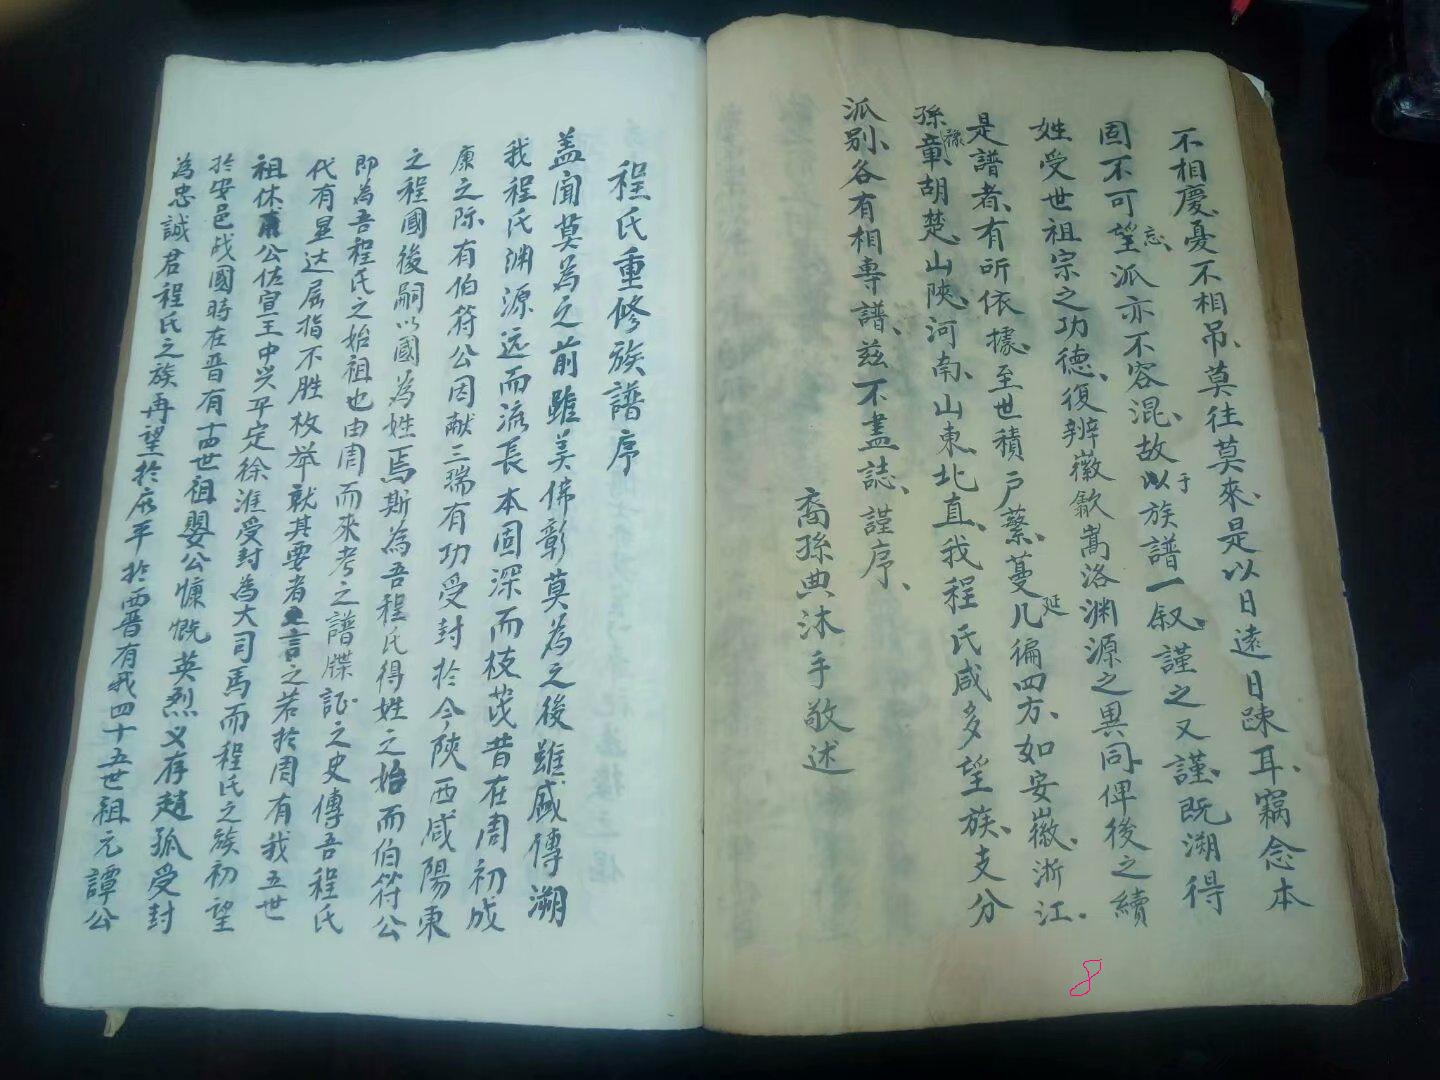 不相慶憂不相吊、莫往莫來、是以日遠日踈耳、竊念本
固不可望派亦不容混、故以族譜一叙、謹之又謹、既溯得
忘、
于
姓受世祖宗之功德、復辨徽歙嵩洛渊源之異同、俾後之續
是譜者、有所依據、至世積户蘩、蔓儿徧四方、如安徽、浙江、
延
孫章、胡楚、山陝、河南、山東、北直、我程氏咸多望族、支分
派别、各有相専譜、兹不盡誌、謹序、
裔孫典沐手敬述
8
程氏重修族譜序
盖闻莫為之前雖美佛彰莫為之後雖盛傳溯
我程氏渊源远而流長本固深而枝茂昔在周初成
康之际有伯符公因献三瑞有功受封於今陝西咸陽東
之程國後嗣以國為姓焉斯為吾程氏得姓之始而伯符公
即為吾程氏之始祖也由周而来考之譜牒証之史傳吾程氏
代有显达屈指不胜枚举就其要者言之若於周有我五世
祖休甫公佐宣王中兴平定徐淮受封為大司馬而程氏之族初望
於安邑战國時在晋有十四世祖嬰公慷慨英烈义存趙孤受封
為忠誠君程氏之族再望於広平於西晋有我四十五世祖元譚公